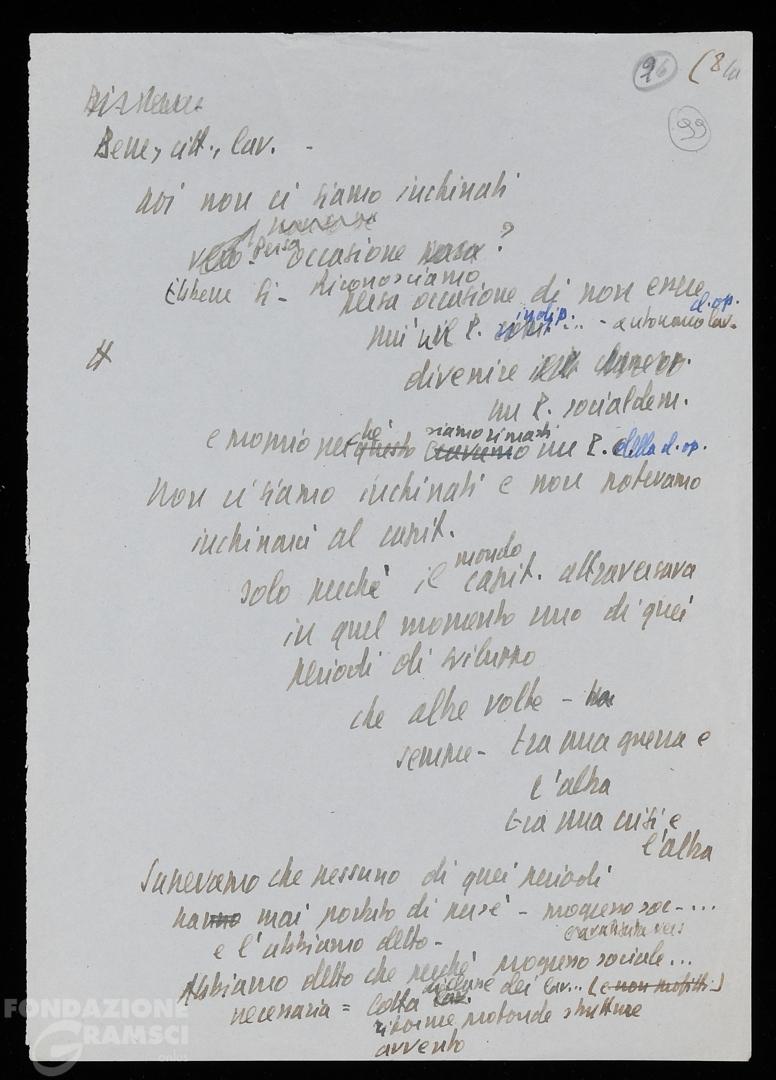 26 (8/a
99
Bene, citt., lav. -
noi non ci siamo inchinati
persa occasione ?
Ebbene si - riconosciamo
persa occasione di non essere
indip. ... - autonomo d. op.
lav.
divenire
un P. socialdem.
#
e proprio perchè questo siamo rimasti un P. della cl. op.
Non ci siamo inchinati e non potevamo
inchinarci al capit.
solo perchè il mondo capit. attraversava
in quel momento uno di quei
periodi di sviluppo
che altre volte - ha
sempre - tra una guerra e
l'altra
tra una crisi e
l'altra
Sapevamo che nessuno di quei periodi
hanno mai portato di per sè - progresso soc - ...
e l'abbiamo detto -
Abbiamo detto che perchè progresso sociale ...
necessaria = lotta unione dei lav... (e non profitti)
riforme profonde strutture
avvento
FONDAZIONE
GRAMSCI
onlus